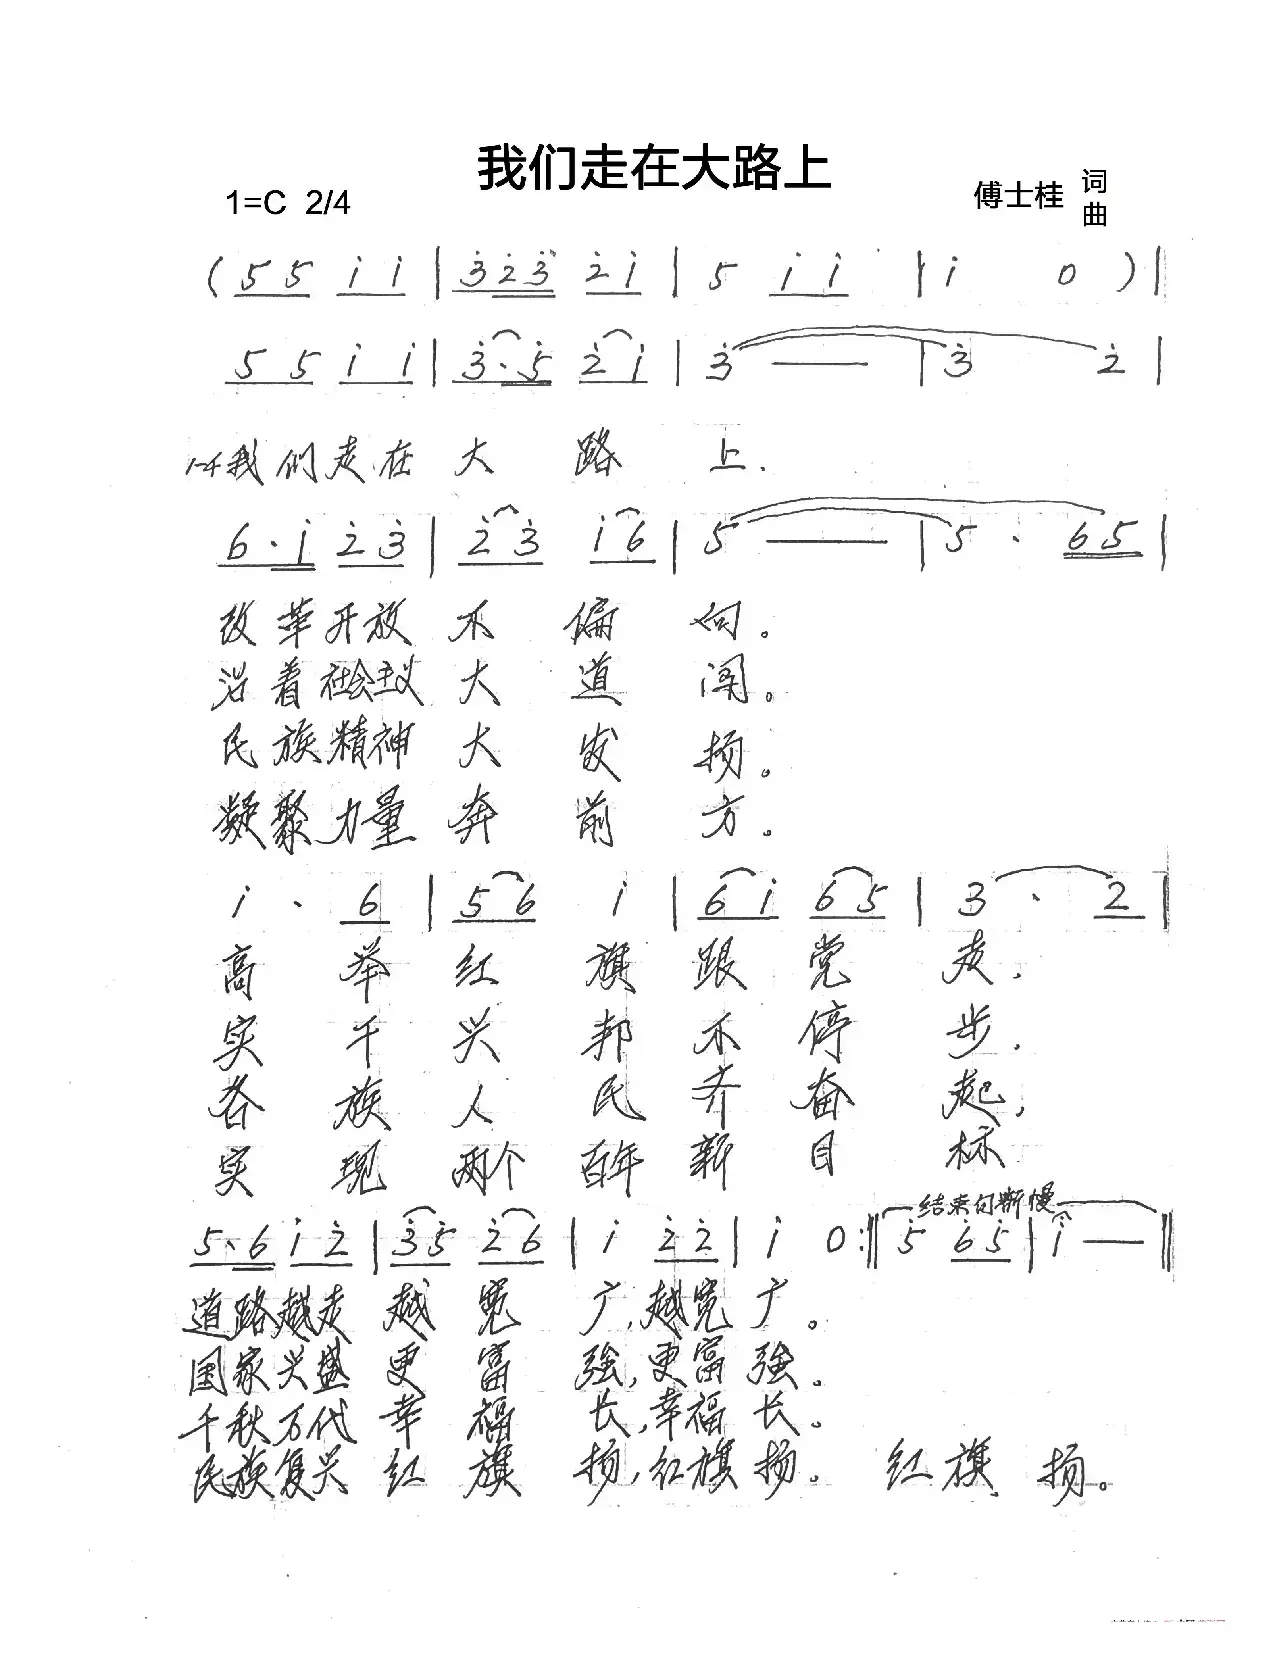 我们走在大路上
1=C 2/4
傅士桂 词
曲
( 5 5 i i | 3̇ 2̇ 3̇ 2̇ i | 5 i i | i 0 ) |
5 5 i i | 3̇ · 5̇ 2̇ i | 3̇ — | 3̇ 2̇ |
1-4 我们走在大路上.
6 · i 2̇ 3̇ | 2̇ 3̇ i 6 | 5 — | 5 · 6 5 |
改革开放不偏向。
沿着社会主义大道闯。
民族精神大发扬。
凝聚力量奔前方。
i · 6 | 5 6 i | 6 i 6 5 | 3 · 2 |
高举红旗跟党走,
实干兴邦不停步.
各族人民齐奋起,
实现两个百年新目标
结束句渐慢
5 · 6 i 2̇ | 3̇ 5̇ 2̇ 6 | i 2̇ 2̇ | i 0 :‖ 5̇ 6̇ 5̇ | i — ‖
道路越走越宽广,越宽广。
国家兴盛更富強,更富強。
千秋万代幸福长,幸福长。
民族复兴红旗扬,红旗扬。红旗扬。